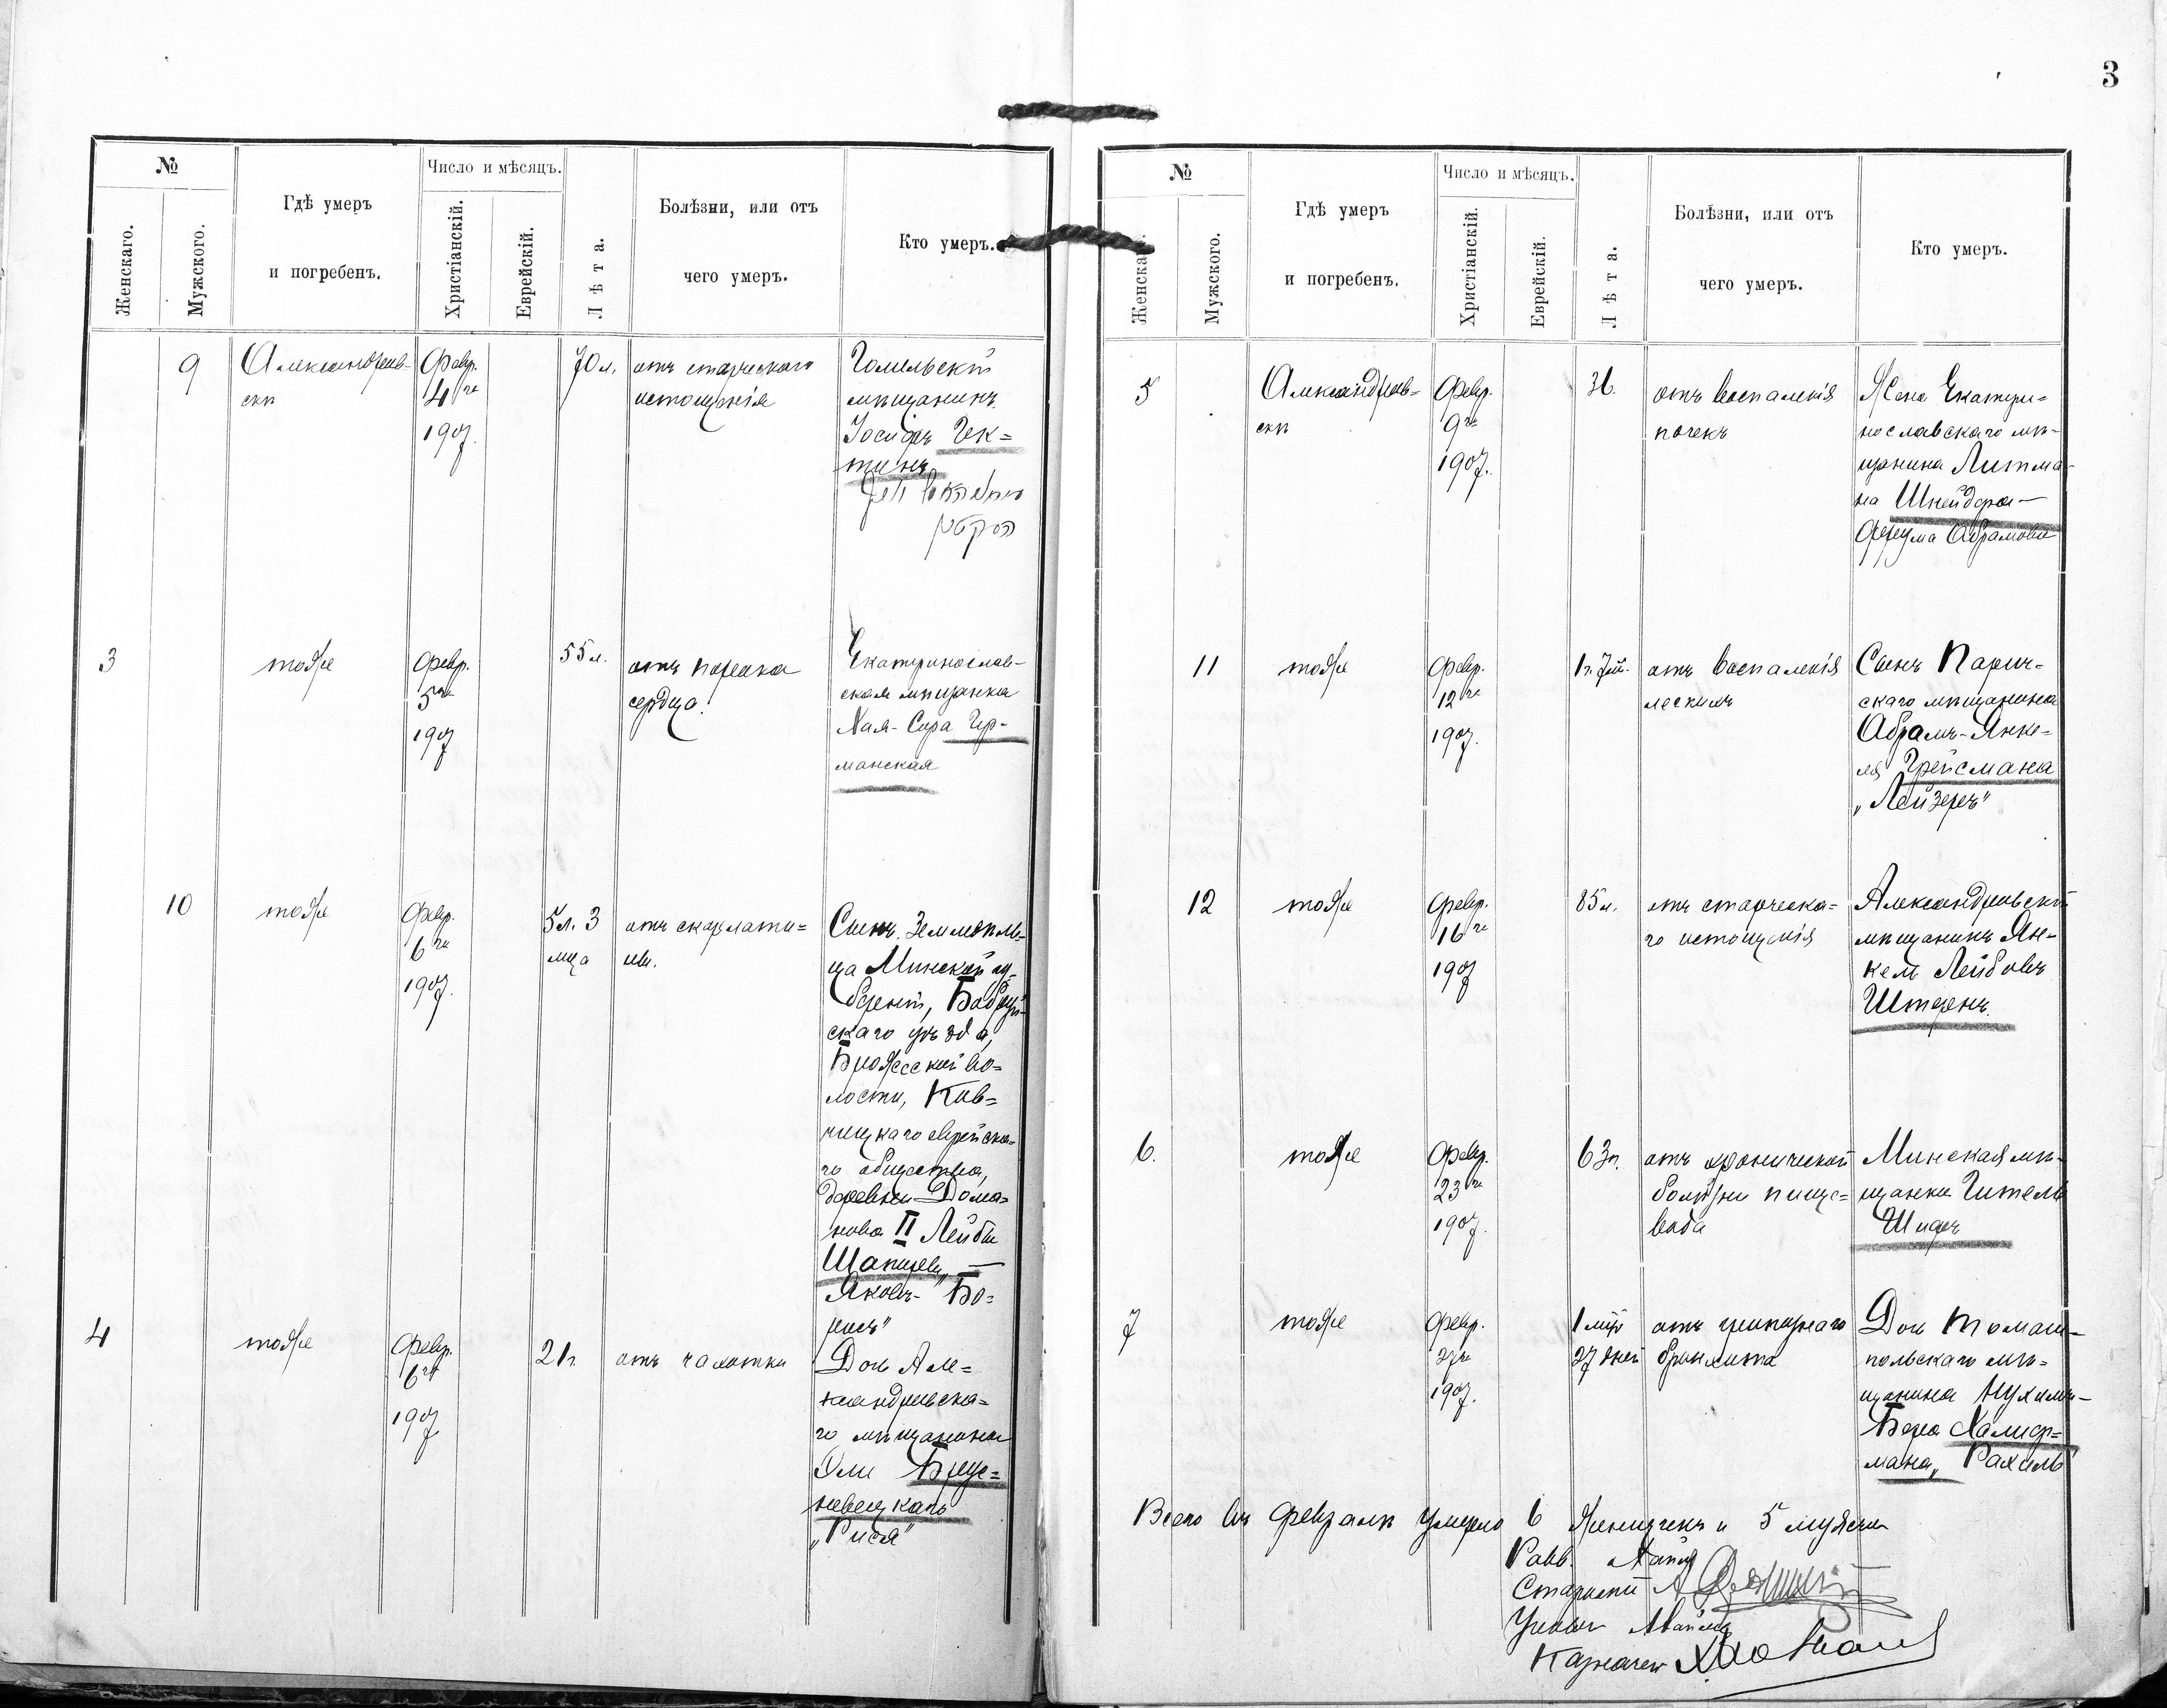 3
№
Женскаго.
Мужского.
Гдѣ умеръ
и погребенъ.
Число и мѣсяцъ.
Христіанскій.
Еврейскій.
Лѣта.
Болѣзни, или отъ
чего умеръ.
Кто умеръ.
9
Александров-
скѣ
Февр.
4го
1907.
70 л.
отъ старческаго
истощенія
Гомельскій
мѣщанинъ
Іосифъ Гек=
тинъ
3
тоже
Февр.
5го
1907
55 л.
отъ порока
сердца.
Екатеринослав-
ская мѣщанка
Хая-Сора Гер-
манская
10
тоже
Февр.
6го
1907.
5 л. 3
мца
отъ скарлати=
ны.
Сынъ земледѣль-
ца Минской гу-
берніи, Бобруй-
скаго уѣзда,
Брожской во=
лости, Ков=
чицкаго еврейска=
го общества,
деревни Дома=
нова II Лейбы
Шапиры, —
Яковъ-Бо=
рисъ"
4
тоже
Февр.
6го
1907
21 г.
отъ чахотки
Дочь Але=
ксандровска=
го мѣщанина
Эли
„Рися"
№
Женскаго.
Мужского.
Гдѣ умеръ
и погребенъ.
Число и мѣсяцъ.
Христіанскій.
Еврейскій.
Лѣта.
Болѣзни, или отъ
чего умеръ.
Кто умеръ.
5
Александров=
скѣ
Февр.
9го
1907.
36.
отъ воспаленія
почекъ
Жена Екатери=
нославскаго мѣ-
щанина Литма-
на Шнейдера —
Фрума Абрамовна
11
тоже
Февр.
12го
1907.
1 г. 7 м.
отъ воспаленія
легкихъ
Сынъ Парич=
скаго мѣщанина
Абрамъ-Янке=
ля Грейсмана
„Лейзеръ"
12
тоже
Февр.
16го
1907
85 л.
отъ старческа=
го истощенія
Александровскій
мѣщанинъ Ян-
кель Лейбовъ
Штернъ.
6.
тоже
Февр.
23го
1907.
63 г.
отъ хронической
болѣзни пище=
вода
Минская мѣ-
щанка Гитель
Шифъ
7
тоже
Февр.
27го
1907.
1 мцъ
27 дней
отъ гриппознаго
бронхита
Дочь Томаш-
польскаго мѣ=
щанина Нухимъ-
Бера Халиф=
мана, Рахиль
Всего въ Февралѣ умерло 6 женщинъ и 5 мужчинъ
Равв.
Староста
Ученый
Казначей